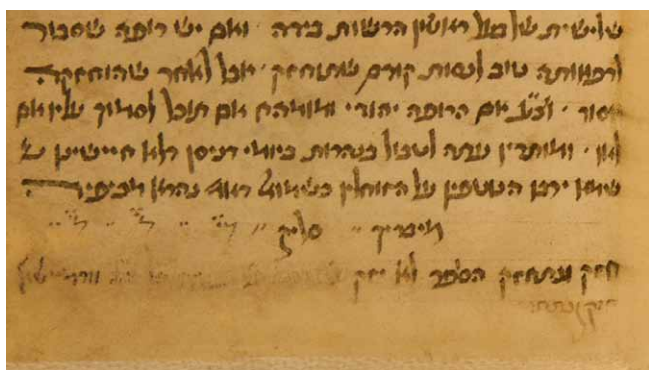 שלישית של בעל ראשון הרשות בידה · ואם יש רופה שסבור
לרפאותה טוב לנסות קודם שתוחזק · אבל לאחר שהוחזקה
אסור · וצ"ע אם הרופה יהודי ומומחה אם תוכל לסמוך עליו אם
לאו · ומותרין עתה לטבול בנהרות ביומי דניסן דלא חיישינן ש
שמא ירבו הנוטפין על הזוחלין כשמואל דאמ' נהרא מכיפיה
מיבריך סליק
חזק ונתחזק הסופר לא יזק